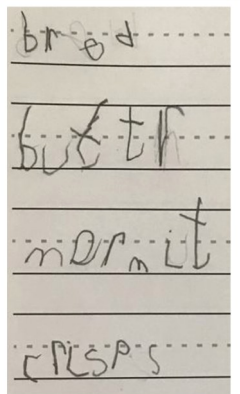 bred
buttr
mormit
crisps